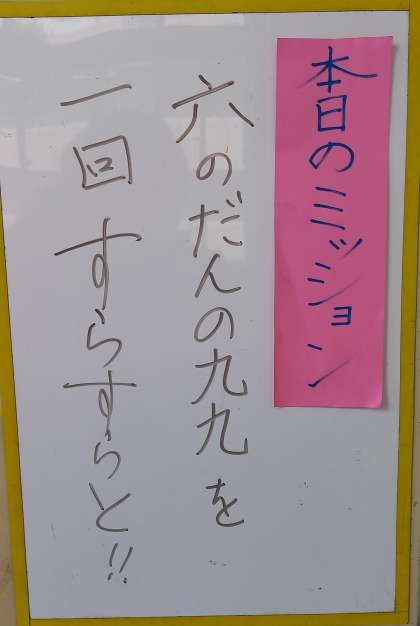 本日のミッション
六のだんの九九を
一回すらすらと!!